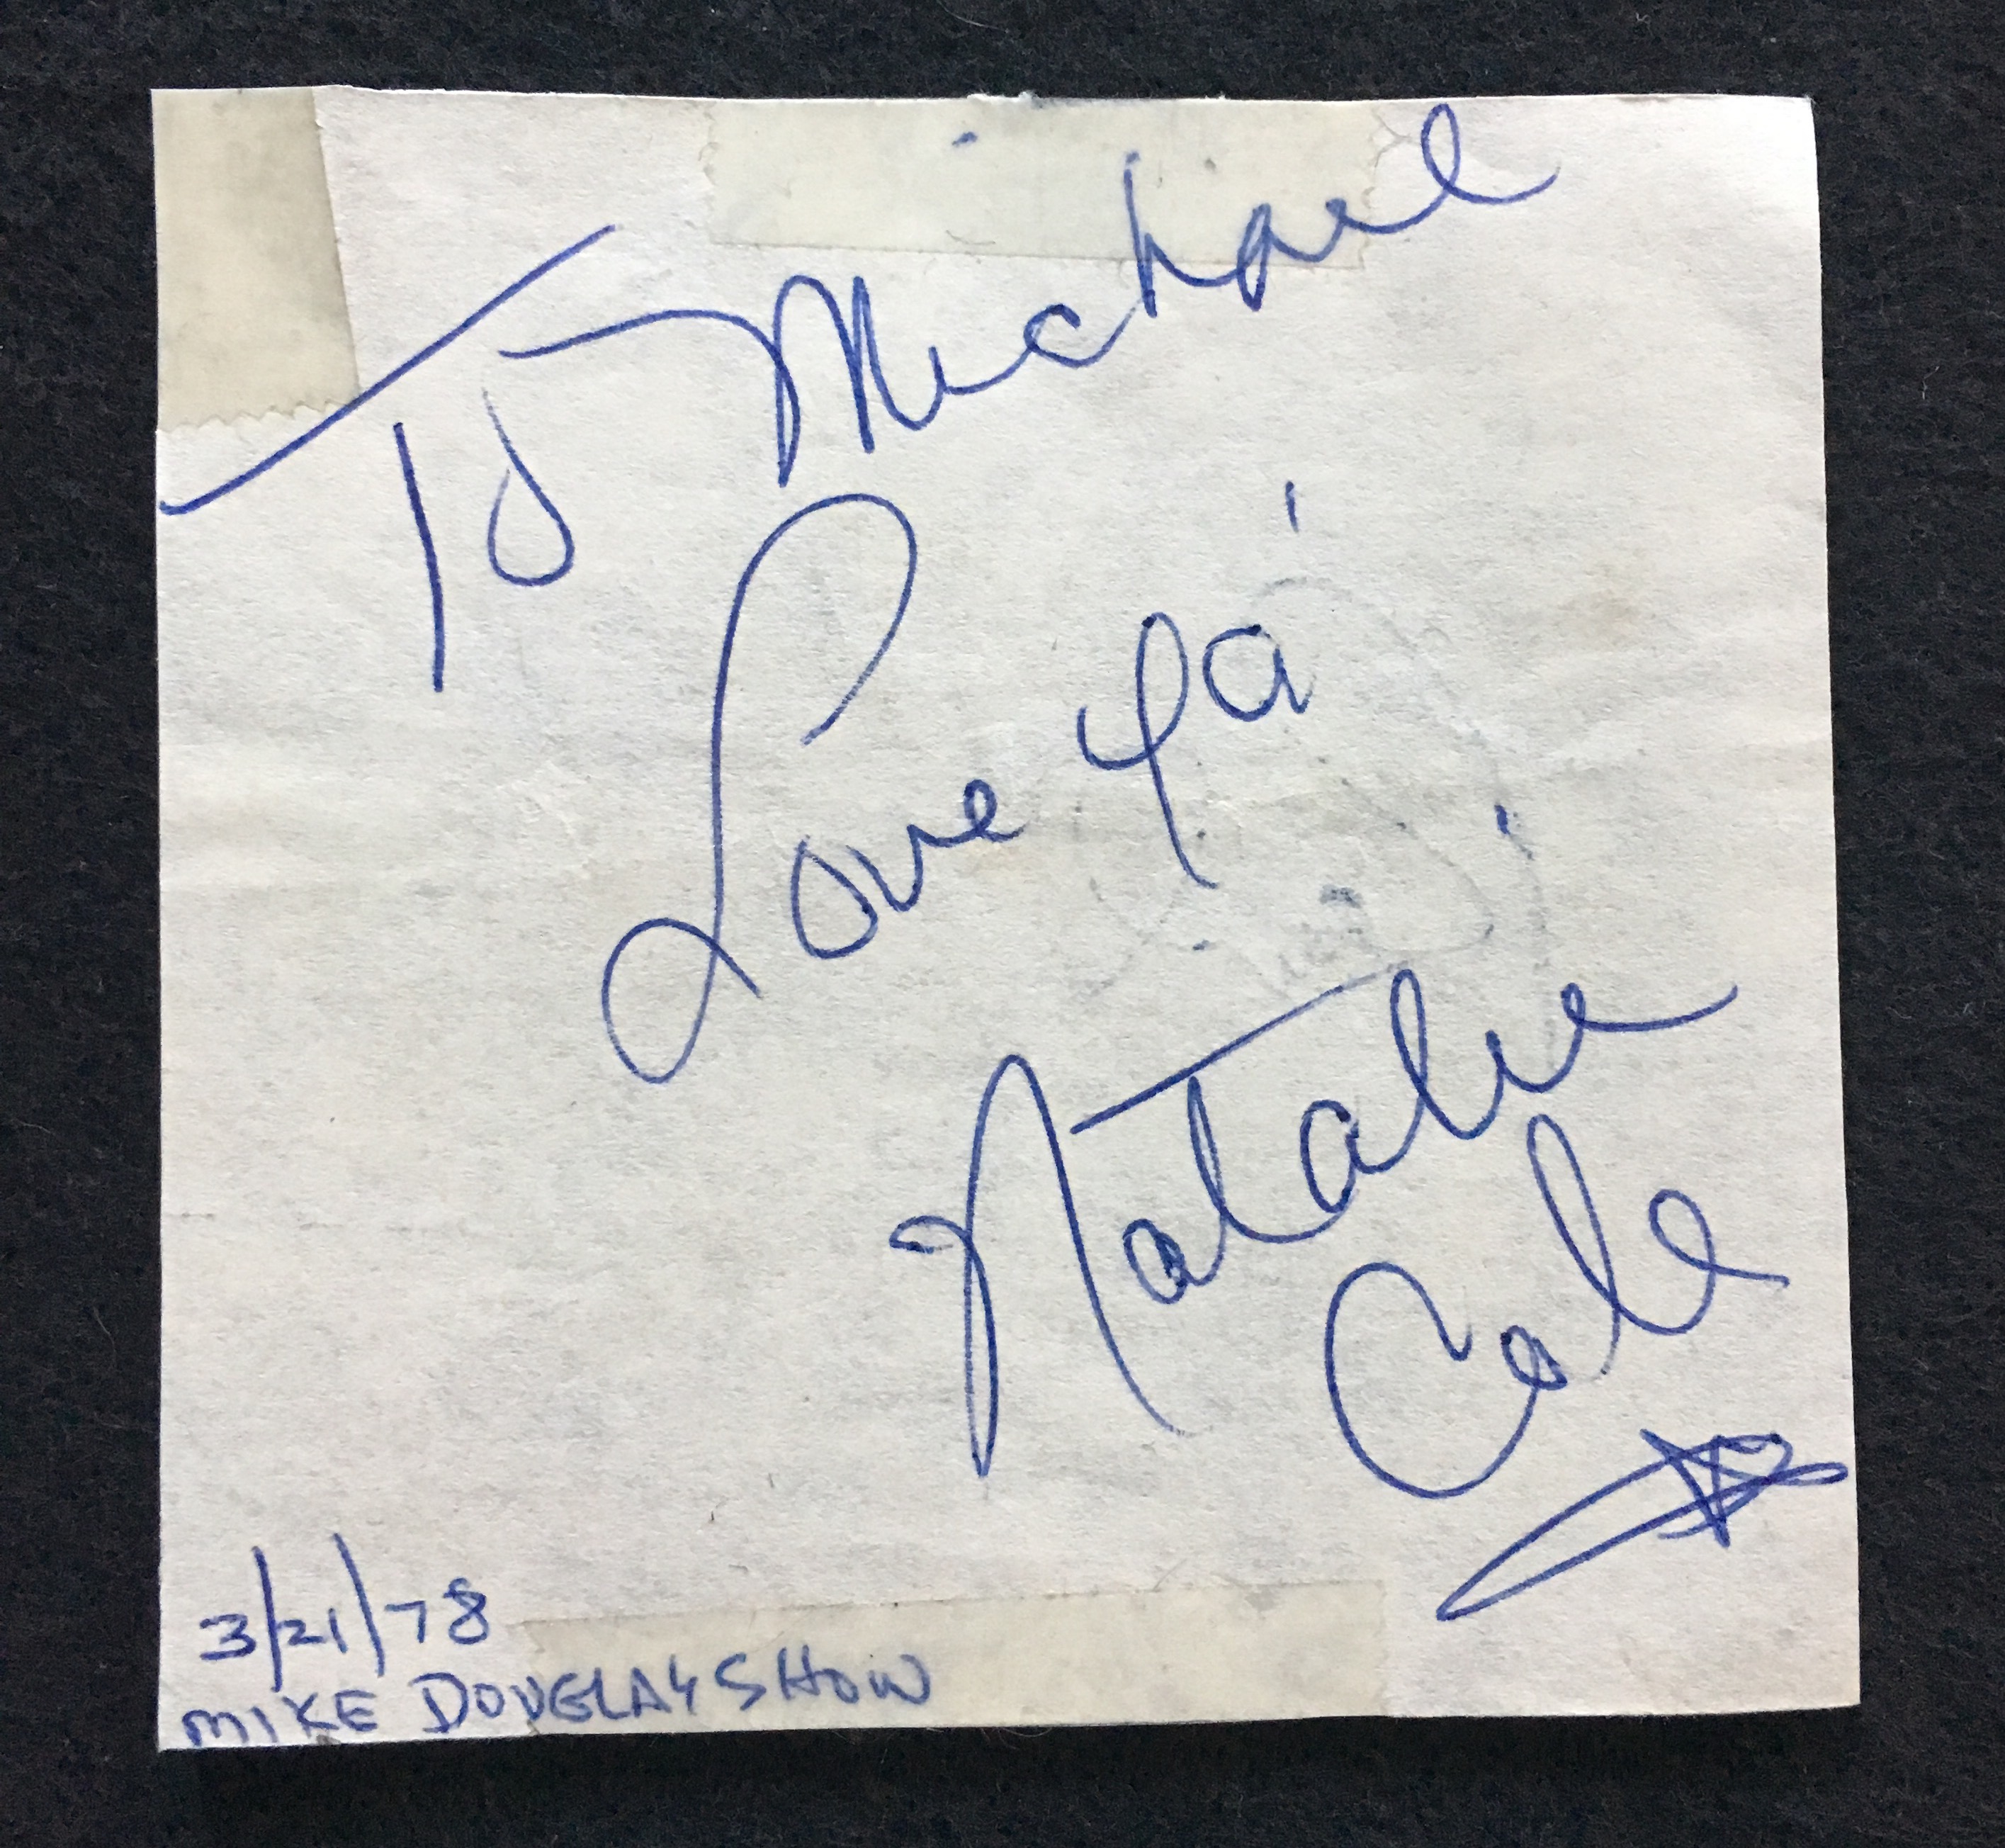 To Michael
Love Ya'
Natalie
Cole
3/21/78
MIKE DOUGLAS SHOW